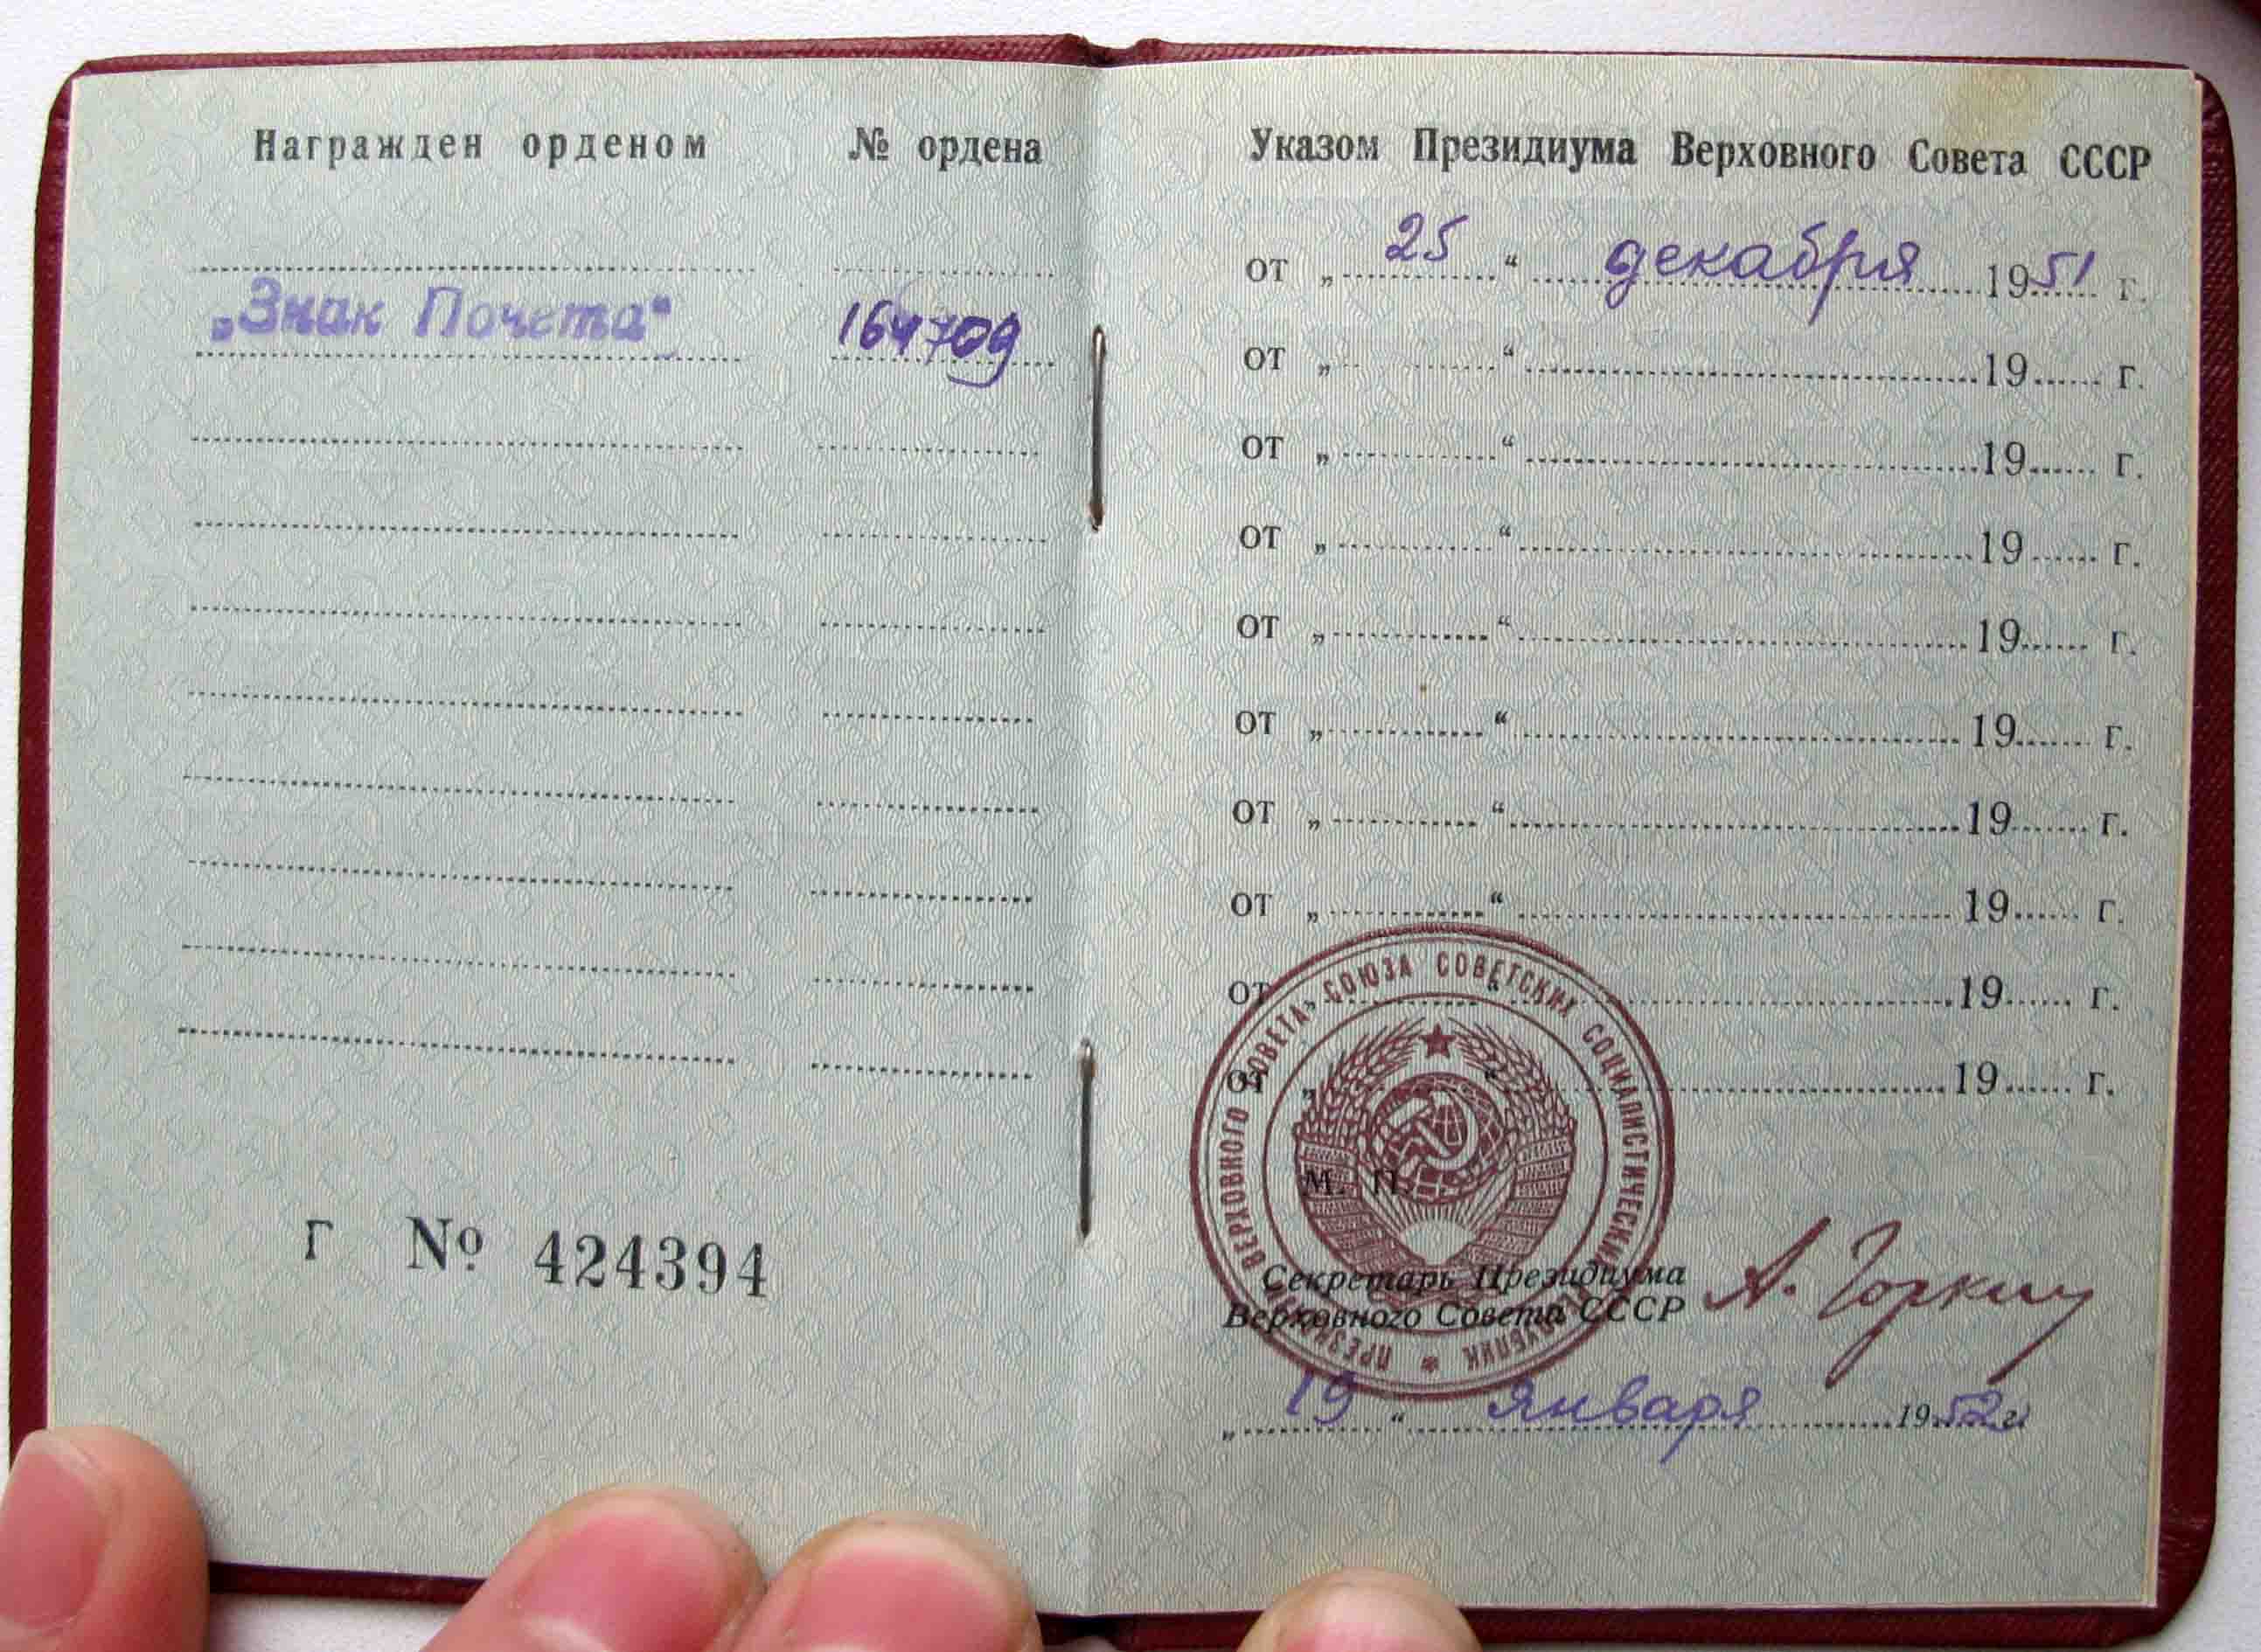 Награжден орденом № ордена
„Знак Почета“ 164709
Г № 424394
Указом Президиума Верховного Совета СССР
от „ 25 “ декабря 1951 г.
от „ “ 19 г.
от „ “ 19 г.
от „ “ 19 г.
от „ “ 19 г.
от „ “ 19 г.
от „ “ 19 г.
от „ “ 19 г.
от „ “ 19 г.
от „ “ 19 г.
ПРЕЗИДИУМ ВЕРХОВНОГО СОВЕТА СОЮЗА СОВЕТСКИХ СОЦИАЛИСТИЧЕСКИХ РЕСПУБЛИК
М. П.
Секретарь Президиума
Верховного Совета СССР
А. Горкин
„ 19 “ января 1952 г.